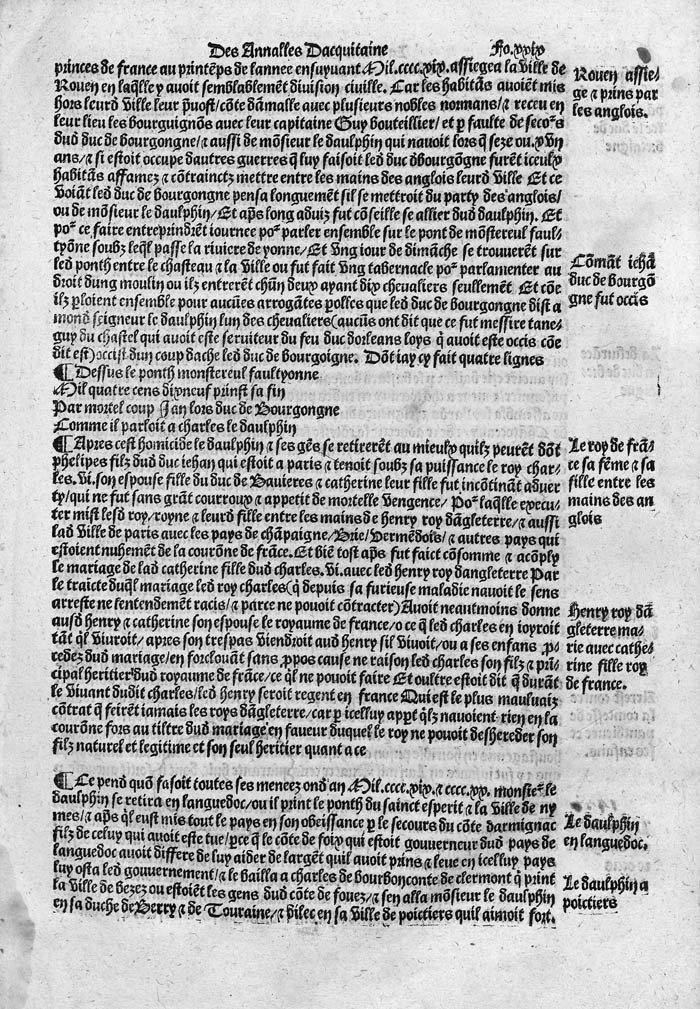 Des Annalles Dacquitaine Fo.xxix
princes de france au printẽps de lannee ensuyuant Mil.cccc.xix.assiegea la ville de
Rouen en laq̃lle y auoit semblablemẽt diuision ciuille. Car les habitãs auoiẽt mis
hors leurd ville leur p̃uost/cõte dãmalle auec plusieurs nobles normans/⁊ receu en
leur lieu les bourguignõs auec leur capitaine Guy bouteillier/et ꝑ faulte de secors
dud duc de bourgongne/⁊ aussi de mõsieur le daulphin qui nauoit lors q̃ seze ou.xvii
ans/⁊ si estoit occupe dautres guerres q̃ luy faisoit led duc dbourgõgne furẽt iceulx
habitãs affamez ⁊ cõtrainctz mettre entre les mains des anglois leurd ville Et ce
voiãt led duc de bourgongne pensa longuemẽt sil se mettroit du party des anglois/
ou de mõsieur le daulphin/Et apš long aduiz fut cõseille se allier dud daulphin. Et
por ce faire entreprindrẽt iournee por parler ensemble sur le pont de mõstereul faul-
tyõne soubz leql̃ passe la riuiere de yonne/Et vng iour de dimãche se trouuerẽt sur
led ponth entre le chasteau ⁊ la ville ou fut fait vng tabernacle por parlamenter au
droit dung moulin ou ilz entrerẽt chũn deux ayant dix cheualiers seullemẽt Et cõe
ilz ꝑloient ensemble pour aucũes arrogãtes ꝑolles que led duc de bourgongne dist a
mond seigneur le daulphin lun des cheualiers(aucũs ont dit que ce fut messire tane-
guy du chastel qui auoit este seruiteur du feu duc dorleans loys q̃ auoit este occis cõe
dit est)occist dun coup dache led duc de bourgoigne. Dõt iay cy fait quatre lignes
¶ Dessus le ponth monstereul faultyonne
Mil quatre cens dixneuf prinst sa fin
Par mortel coup Jan lors duc de Bourgongne
Comme il parloit a charles le daulphin
¶ Apres cest homicide le daulphin ⁊ ses gẽs se retirerẽt au mieulx quilz peurẽt dõt
phelipes filz dud duc iehan qui estoit a paris ⁊ tenoit soubz sa puissance le roy char-
les.vi.son espouse fille du duc de Bauieres ⁊ catherine leur fille fut incõtinãt aduer
ty/qui ne fut sans grãt courroux ⁊ appetit de mortelle vengence/ Por laq̃lle execu-
ter mist lesd roy/royne ⁊ leurd fille entre les mains de henry roy dãgleterre/⁊ aussi
lad ville de paris auec les pays de chãpaigne/Brie/Vermẽdois/⁊ autres pays qui
estoient nuhemẽt de la courõne de frãce. Et biẽ tost apš fut faict cõsomme ⁊ acõply
le mariage de lad catherine fille dud charles.vi.auec led henry roy dangleterre Par
le traicte duql̃ mariage led roy charles(q̃ depuis sa furieuse maladie nauoit le sens
arreste ne lentendemẽt racis/⁊ parce ne pouoit cõtracter)Auoit neautmoins donne
ausd henry ⁊ catherine son espouse le royaume de france/o ce q̃ led charles en ioyroit
tãt ql̃ viuroit/apres son trespas viendroit aud henry sil viuoit/ou a ses enfans ꝓ-
cedez dud mariage/en forclouãt sans ꝓpos cause ne raison led charles son filz ⁊ pri-
cipal heritier dud royaume de frãce/ce ql̃ ne pouoit faire Et oultre estoit dit q̃ durãt
le viuant dudit charles/led henry seroit regent en france Qui est le plus mauluaiz
cõtrat q̃ feirẽt iamais les roys dãgleterre/car ꝑ icelluy appt ql̃z nauoient rien en la
courõne fors au tiltre dud mariage en faueur duquel le roy ne pouoit deshereder son
filz naturel et legitime et son seul heritier quant a ce
¶ Ce pend quõ fasoit toutes ses meneez ond an Mil.cccc.xix.⁊ cccc.xx. monsier le
daulphin se retira en languedoc/ou il print le ponth du sainct esperit ⁊ la ville de ny
mes/⁊ apš ql̃ eust mis tout le pays en son obeissance ꝑ le secours du cõte darmignac
filz de celuy qui auoit este tue/ꝑce q̃ le cõte de foix qui estoit gouuerneur dud pays de
languedoc auoit differe de luy aider de largẽt quil auoit prins ⁊ leue en icelluy pays
luy osta led gouuernement/⁊ le bailla a charles de bourbon conte de clermont q̃ print
la ville de bezez ou estoiẽt les gens dud cõte de fouez/⁊ sen alla mõsieur le daulphin
en sa duche de Berry ⁊ de Touraine/⁊ dilec en sa ville de poictiers quil aimoit fort.
Rouen assie-
ge ⁊ prins par
les anglois.
Cõmãt iehã
duc de bourgõ
gne fut occis
Le roy de frã-
ce sa fẽme ⁊ sa
fille entre les
mains des an
glois
Henry roy dã
gleterre ma-
rie auec cathe-
rine fille roy
de france.
Le daulphin
en languedoc.
Le daulphin a
poictiers